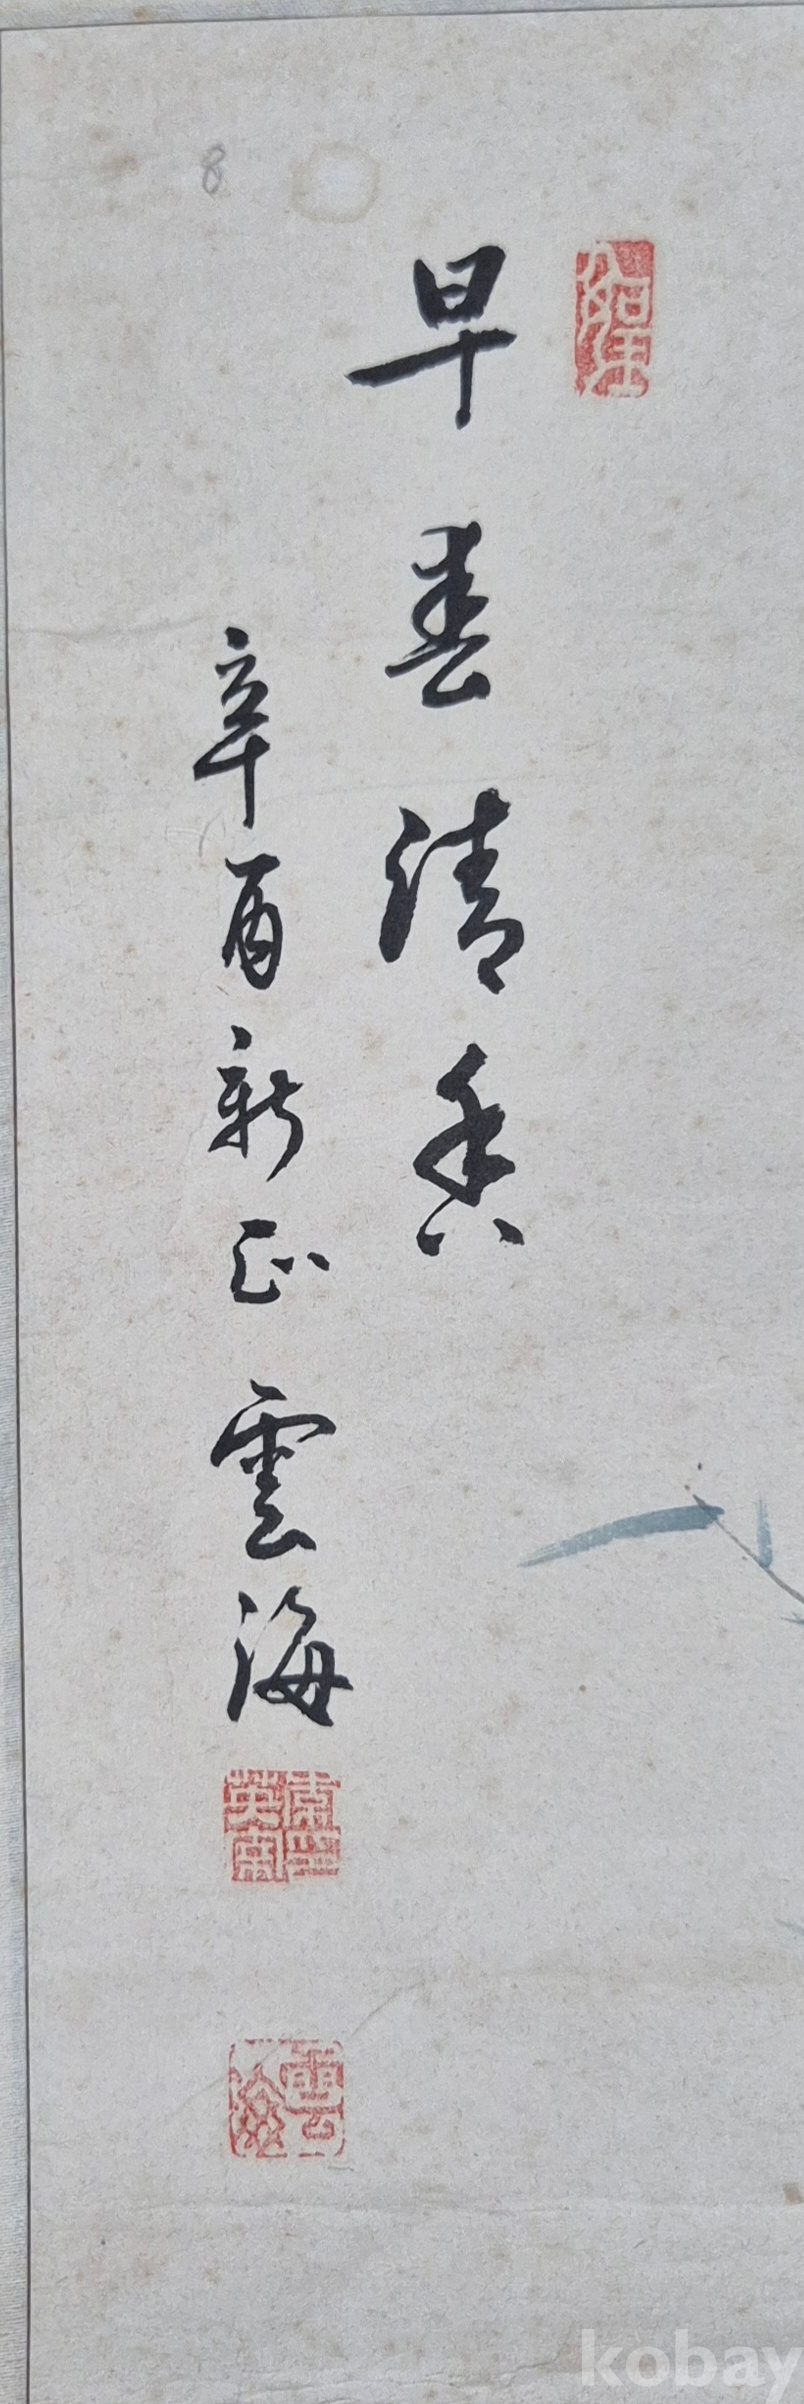 早春清香
辛酉新正 雲海
雲海
8
kobay